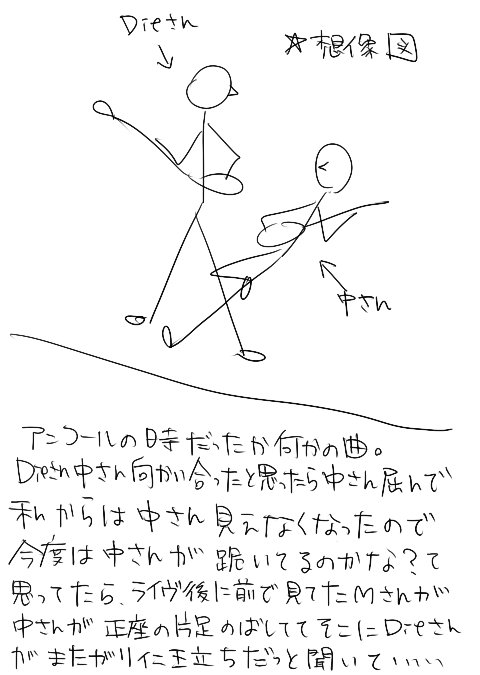 Dieさん
☆想像図
中さん
アンコールの時だったか何かの曲。
Dieさん中さん向かい合ったと思ったら中さん屈んで
私からは中さん見えなくなったので
今度は中さんが跪いてるのかな？て
思ってたら、ライヴ後に前で見てたMさんが
中さんが正座の片足のばしててそこにDieさん
がまたがり仁王立ちだっと聞いてぃぃぃ